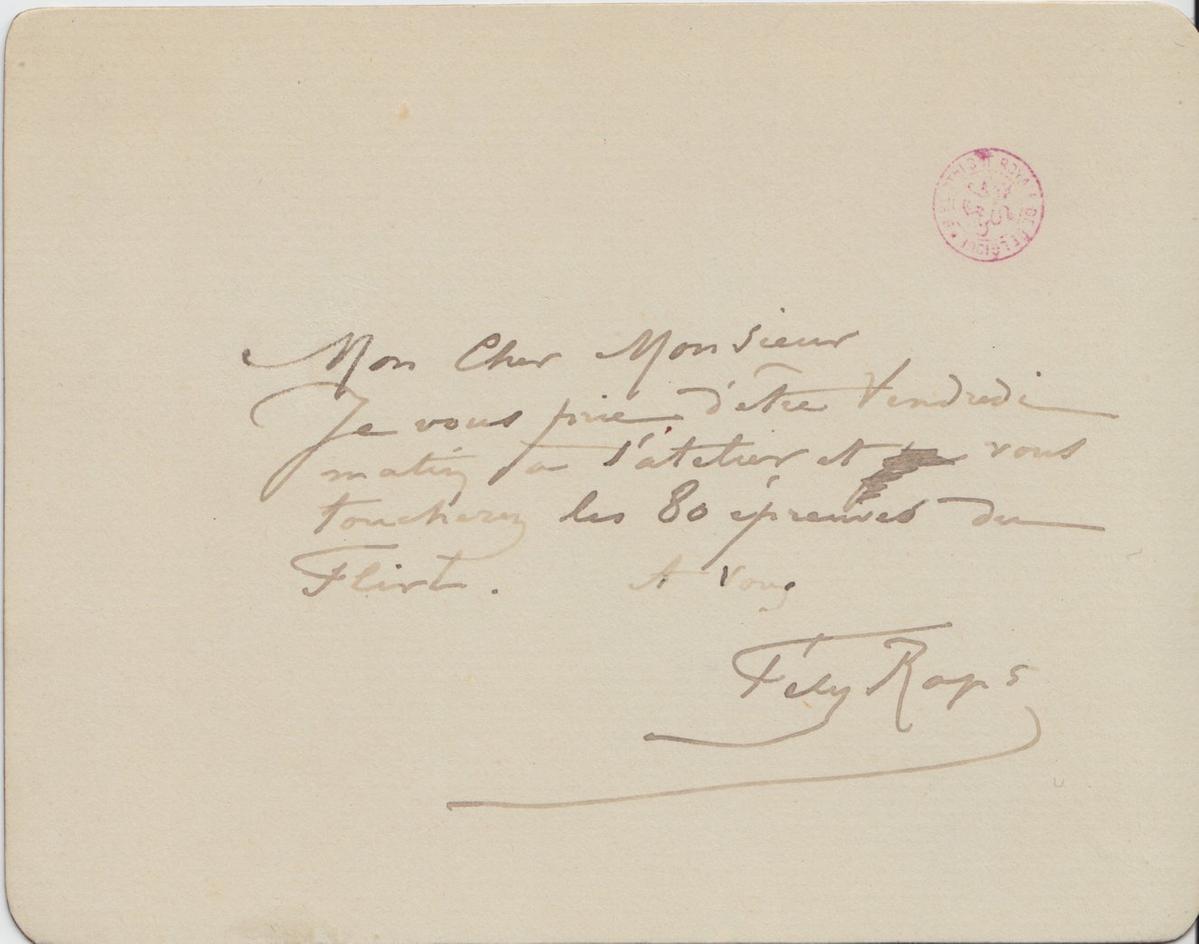 BIBLIOTHEQUE ROYALE DE BELGIQUE
Mon Cher Monsieur
Je vous prie d'être Vendredi
matin à l'atelier et vous
toucherez les 80 épreuves du
Flirt. A vous
Fély Rops